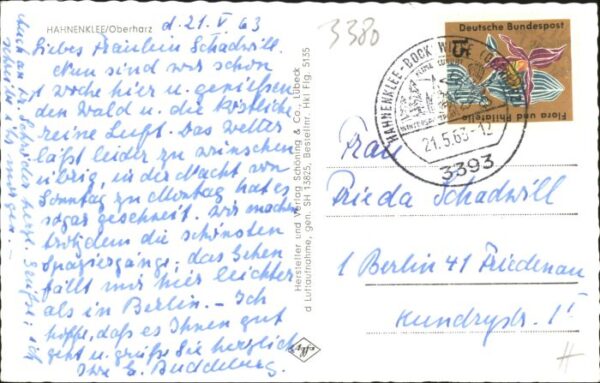 HAHNENKLEE/Oberharz
d. 21. V. 63
Liebes Fräulein Schadwill.
Nun sind wir schon
1 Woche hier u. genießen
den Wald u. die köstliche
reine Luft. Das Wetter
läßt leider zu wünschen
übrig, in der Nacht von
Sonntag zu Montag hat es
sogar geschneit. Wir machen
trotzdem die schönsten
Spaziergänge, das Gehen
fällt mir hier leichter
als in Berlin. – Ich
hoffe, daß es Ihnen gut
geht u. grüße Sie herzlich
Ihre E. Buddeburg.
Auch an Dr. Schröder herzl. Grüße; ich
schreibe ihr morgen –
Hersteller und Verlag Schöning & Co., Lübeck
d Luftaufnahme, gen. SH 13825, Bestellnr. Hkl Flg. 5135
3380
Deutsche Bundespost
15
Flora und Philatelie
HAHNENKLEE-BOCKSWIESE
21.5.63-12
3393
Frau
Frieda Schadwill
1 Berlin 41 Friedenau
Kundrystr. 1